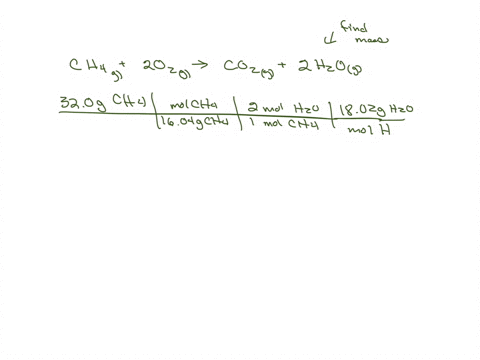 find
mass
CH4(g) + 2O2(g) → CO2(g) + 2H2O(g)
32.0g CH4 | mol CH4 | 2 mol H2O | 18.02g H2O
16.04g CH4 | 1 mol CH4 | mol H